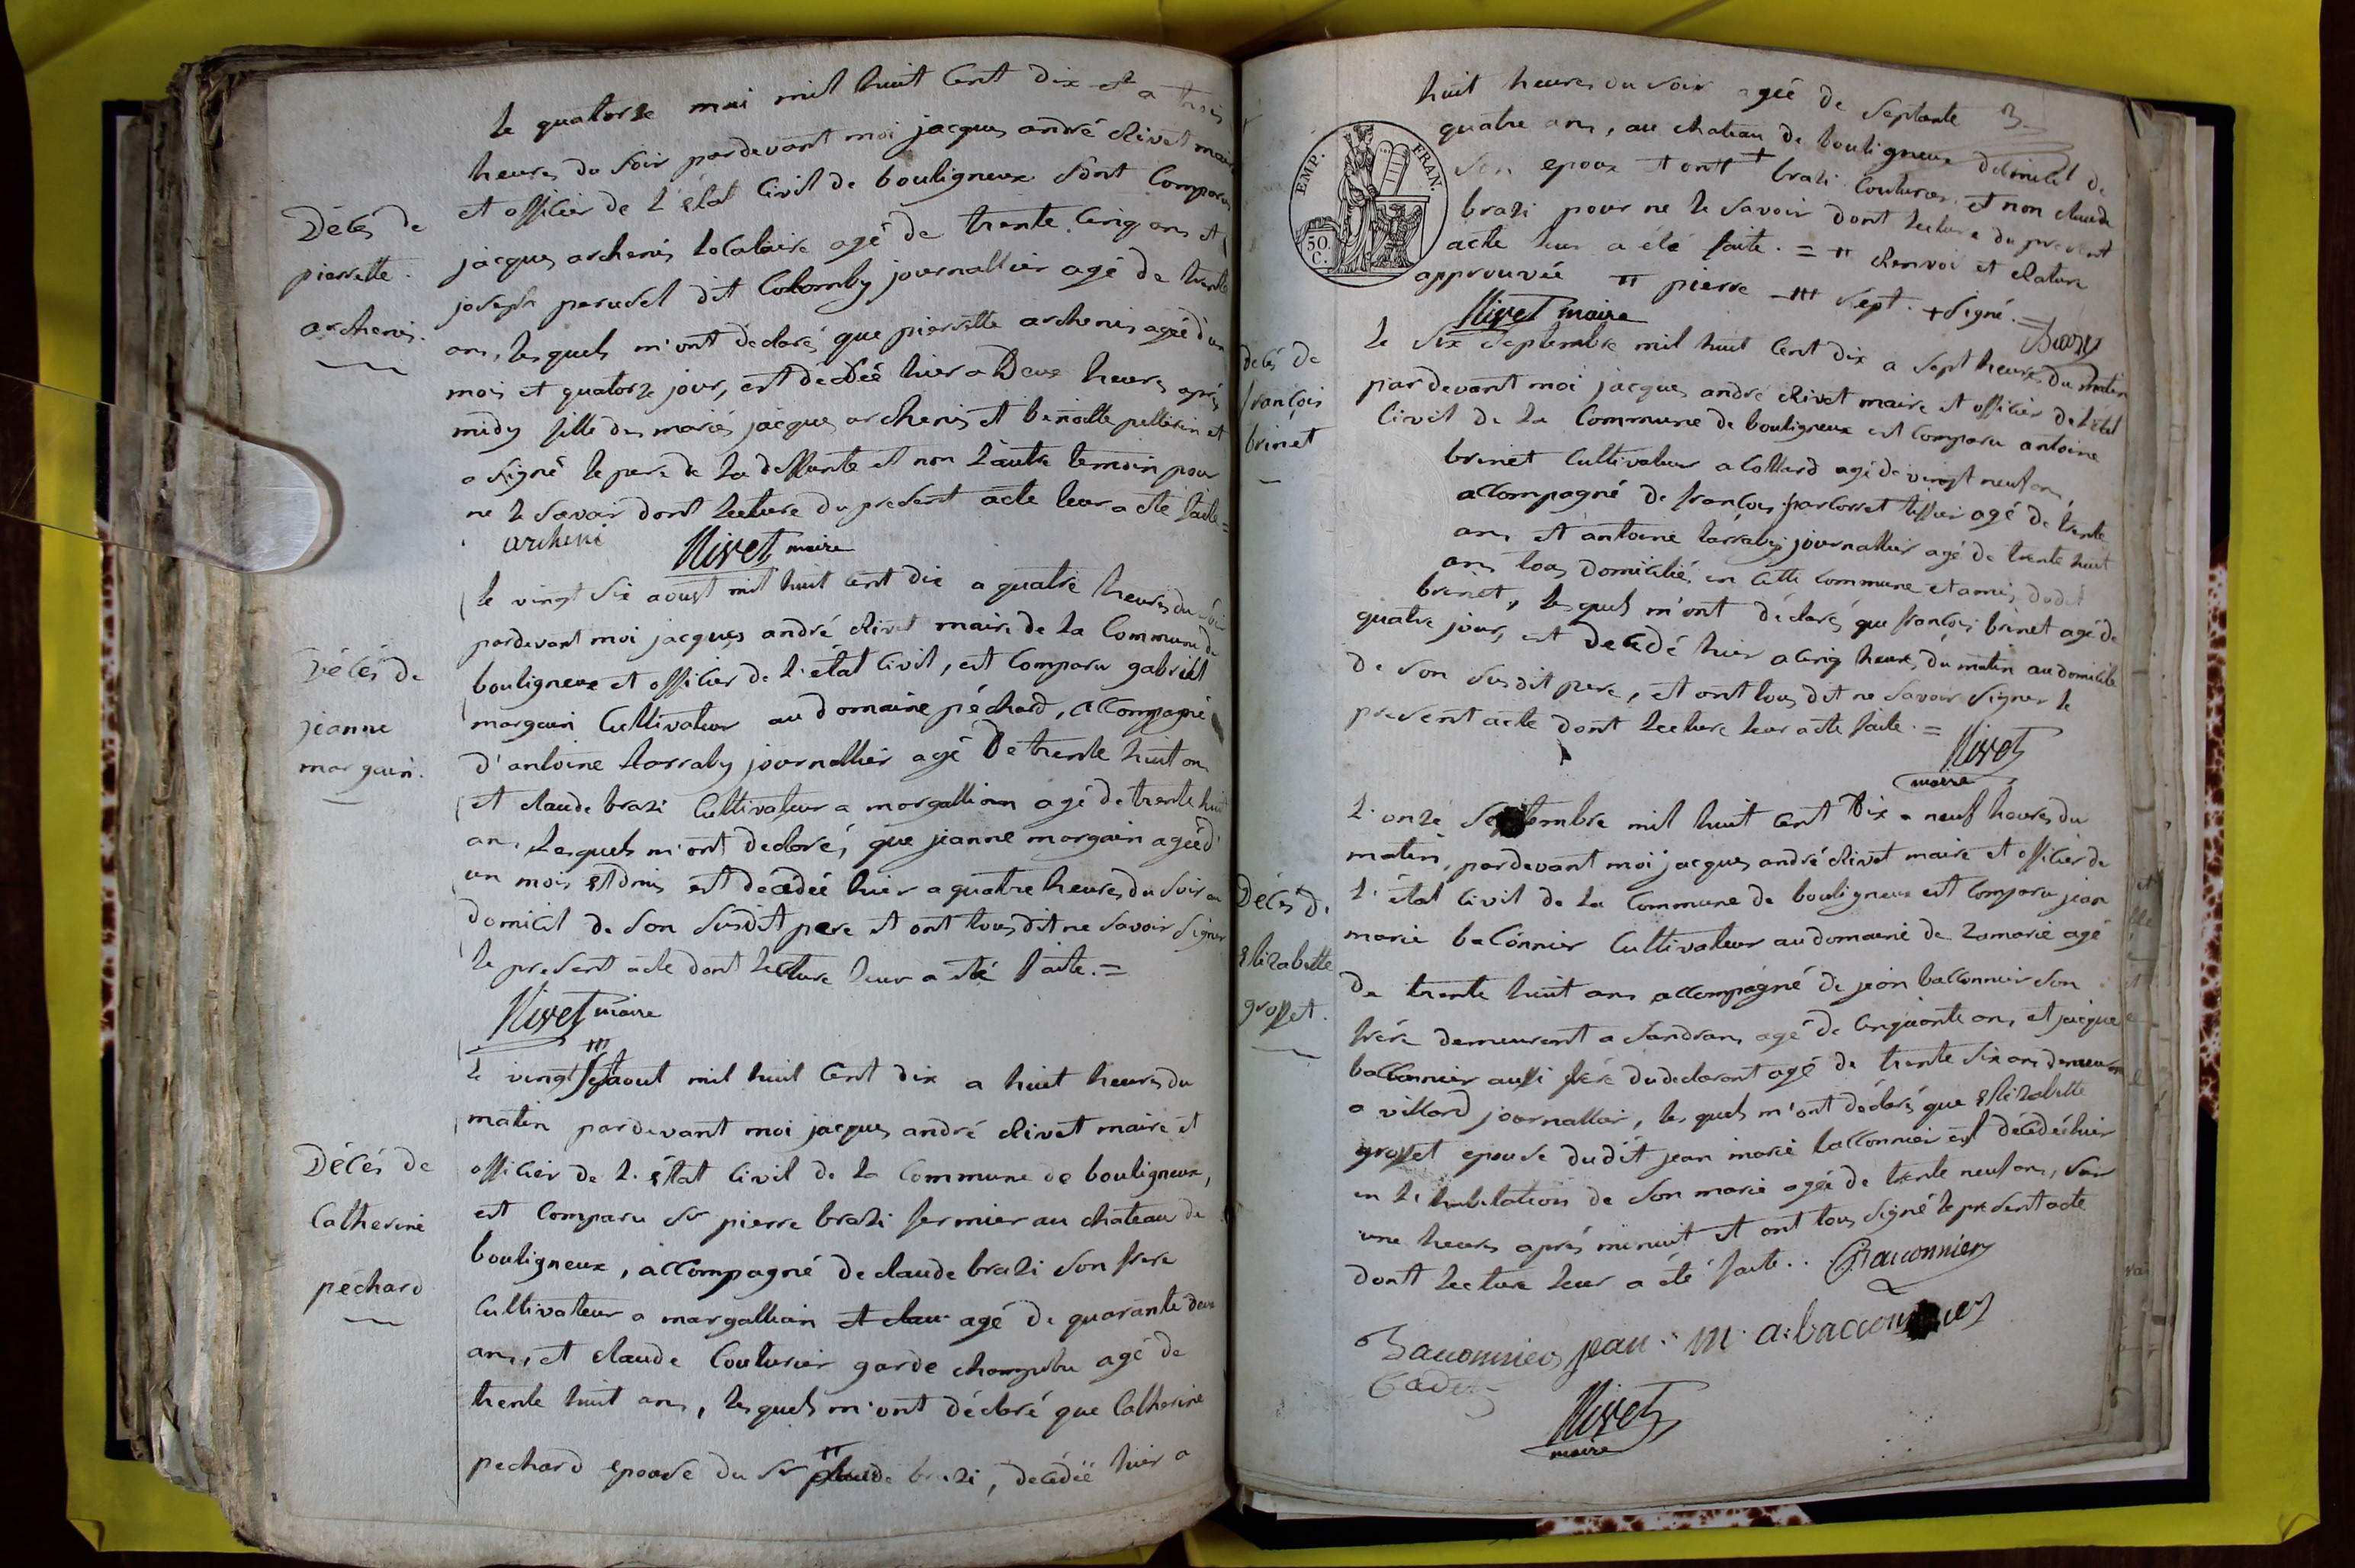 le quatorze mai mil huit Cent dix et a trois
heures du soir pardevant moi jacques andré Rivet maire
et officier de l'état Civil de bouligneux sont Comparus
Décés de
pierrette
archenis.
jacques archenis locataire agé de trente Cinq ans et
joseph perusel dit Colomby journallier agé de trente
ans, lesquels m'ont declarés que pierrette archenis agée d'un
mois et quatorze jour, est decedée hier a Deux heures après
midy fille des mariés jacques archenis et benoitte pellerin et
a signé le pere de la deffunte et non l'autre temoin pour
ne le savoir dont lecture du present acte leur a eté faite =
archeni Rivet maire
le vingt six aoust mil huit Cent dix a quatre heures du soir
pardevant moi jacques andré Rivet maire de la Commune de
Décés de
jeanne
margain.
bouligneux et officier de l'état Civil, est Comparu gabriel
margain Cultivateur au domaine péchard, accompagné
d'antoine tarraby journallier agé De trente huit ans
et claude brazi Cultivateur a morgallian agé de trente huit
ans, Lesquels m'ont declaré, que jeanne margain agée d'
un mois et demis est decedée hier a quatre heures du soir au
domicil de son susdit pere et ont tous dit ne savoir signer
le present acte dont lecture leur a eté faite. =
Rivet maire
le vingt sept aout mil huit Cent dix a huit heures du
matin pardevant moi jacques andré Rivet maire et
Décés de
Catherine
péchard
officier de l'état Civil de la Commune de bouligneux,
est Comparu Sr pierre brazi fermier au chateau de
bouligneux, accompagné de claude brazi son frere
Cultivateur a margallian et clau agé de quarante deux
ans, et claude Couturier garde champetre agé de
trente huit ans, lesquels m'ont déclaré que Catherine
pechard epouse du Sr claude brazi, decedée hier a
huit heures du soir agée de septante 3
quatre ans, au chateau de bouligneux domicil de
son epoux et ont + brazi Couturier, et non claude
brazi pour ne le savoir dont lecture du present
acte leur a été faite. = II Renvoi et Rature
approuvée II pierre III sept. + signé. =
EMP. FRAN.
50. C.
Rivet maire Brazy
decés de
françois
brinet
le six septembre mil huit Cent dix a sept heures du matin
pardevant moi jacques andré Rivet maire et officier de l'état
Civil de la Commune de bouligneux est Comparu antoine
brinet Cultivateur a Collard agé de vingt neuf ans,
accompagné de françois tissier agé de trente
ans et antoine tarraby journallier agé de trente huit
ans tous domiciliés en Cette Commune et amis dudit
brinet, lesquels m'ont déclarés que françois brinet agé de
quatre jour, est decedé hier a Cinq heures du matin au domicile
de son susdit pere, et ont tous dit ne savoir signer le
present acte dont lecture leur a eté faite. =
Rivet
maire
Décés de
Elizabette
grosset.
L'onze Septembre mil huit Cent Dix a neuf heures du
matin, pardevant moi jacques andré Rivet maire et officier de
l'état Civil de la Commune de bouligneux est Comparu jean
marie baconnier Cultivateur au domaine de Lamarie agé
de trente huit ans accompagné de jean bacconnier son
frére demeurent a Sandrans agé de Cinquante ans, et jacque
bacconnier aussi frére du declarent agé de trente six ans demeurant
a villard journallier, lesquels m'ont déclarés que Elizabette
grosset epouse dudit jean marie bacconnier est décédée hier
en l'habitation de son marie agée de trente neuf ans, sur
une heures aprés minuit et ont tous signé le present acte
dont lecture leur a été faite.. Bauconnier
Bauconnier jean. m. a. bacconnier
Cadet
Rivet
maire